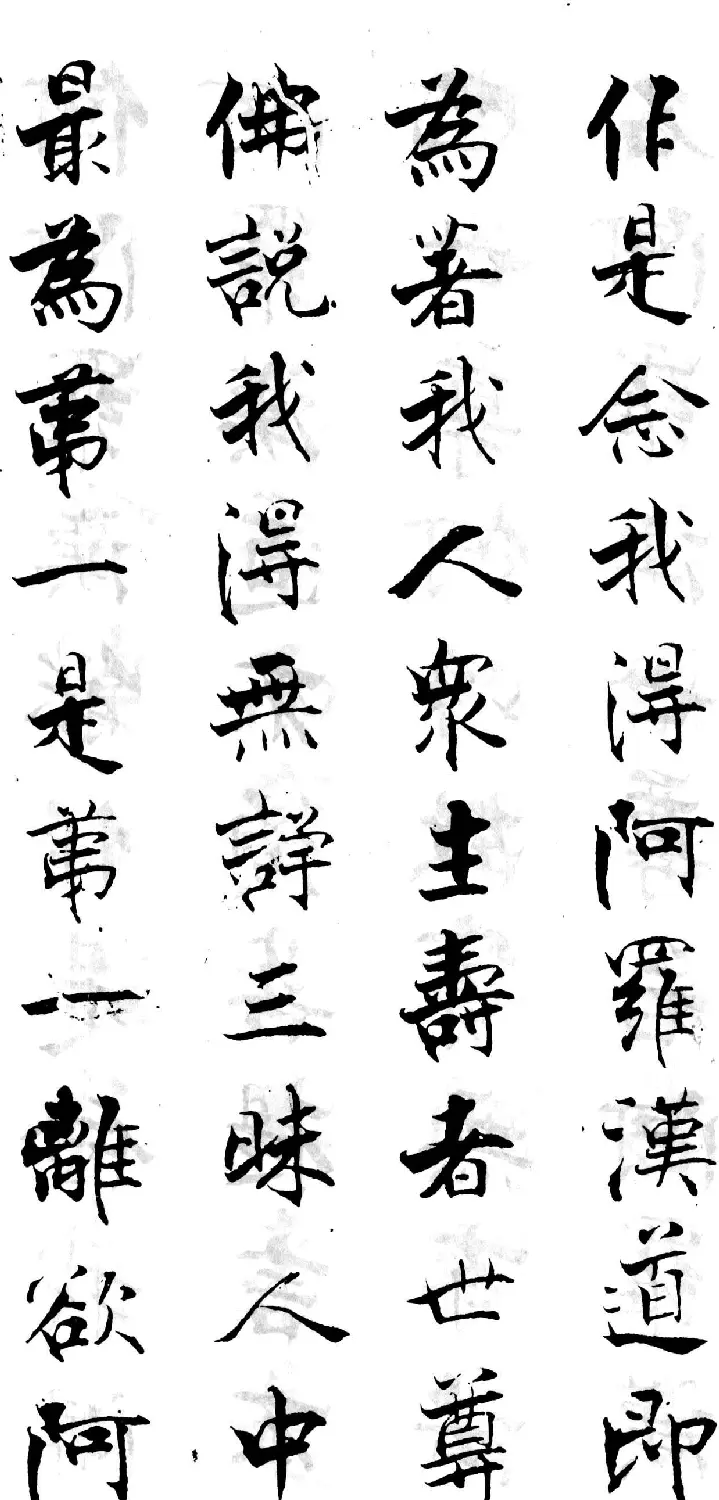 作是念我得阿羅漢道即
為著我人衆生壽者世尊
佛説我得無諍三昧人中
最為第一是第一離欲阿